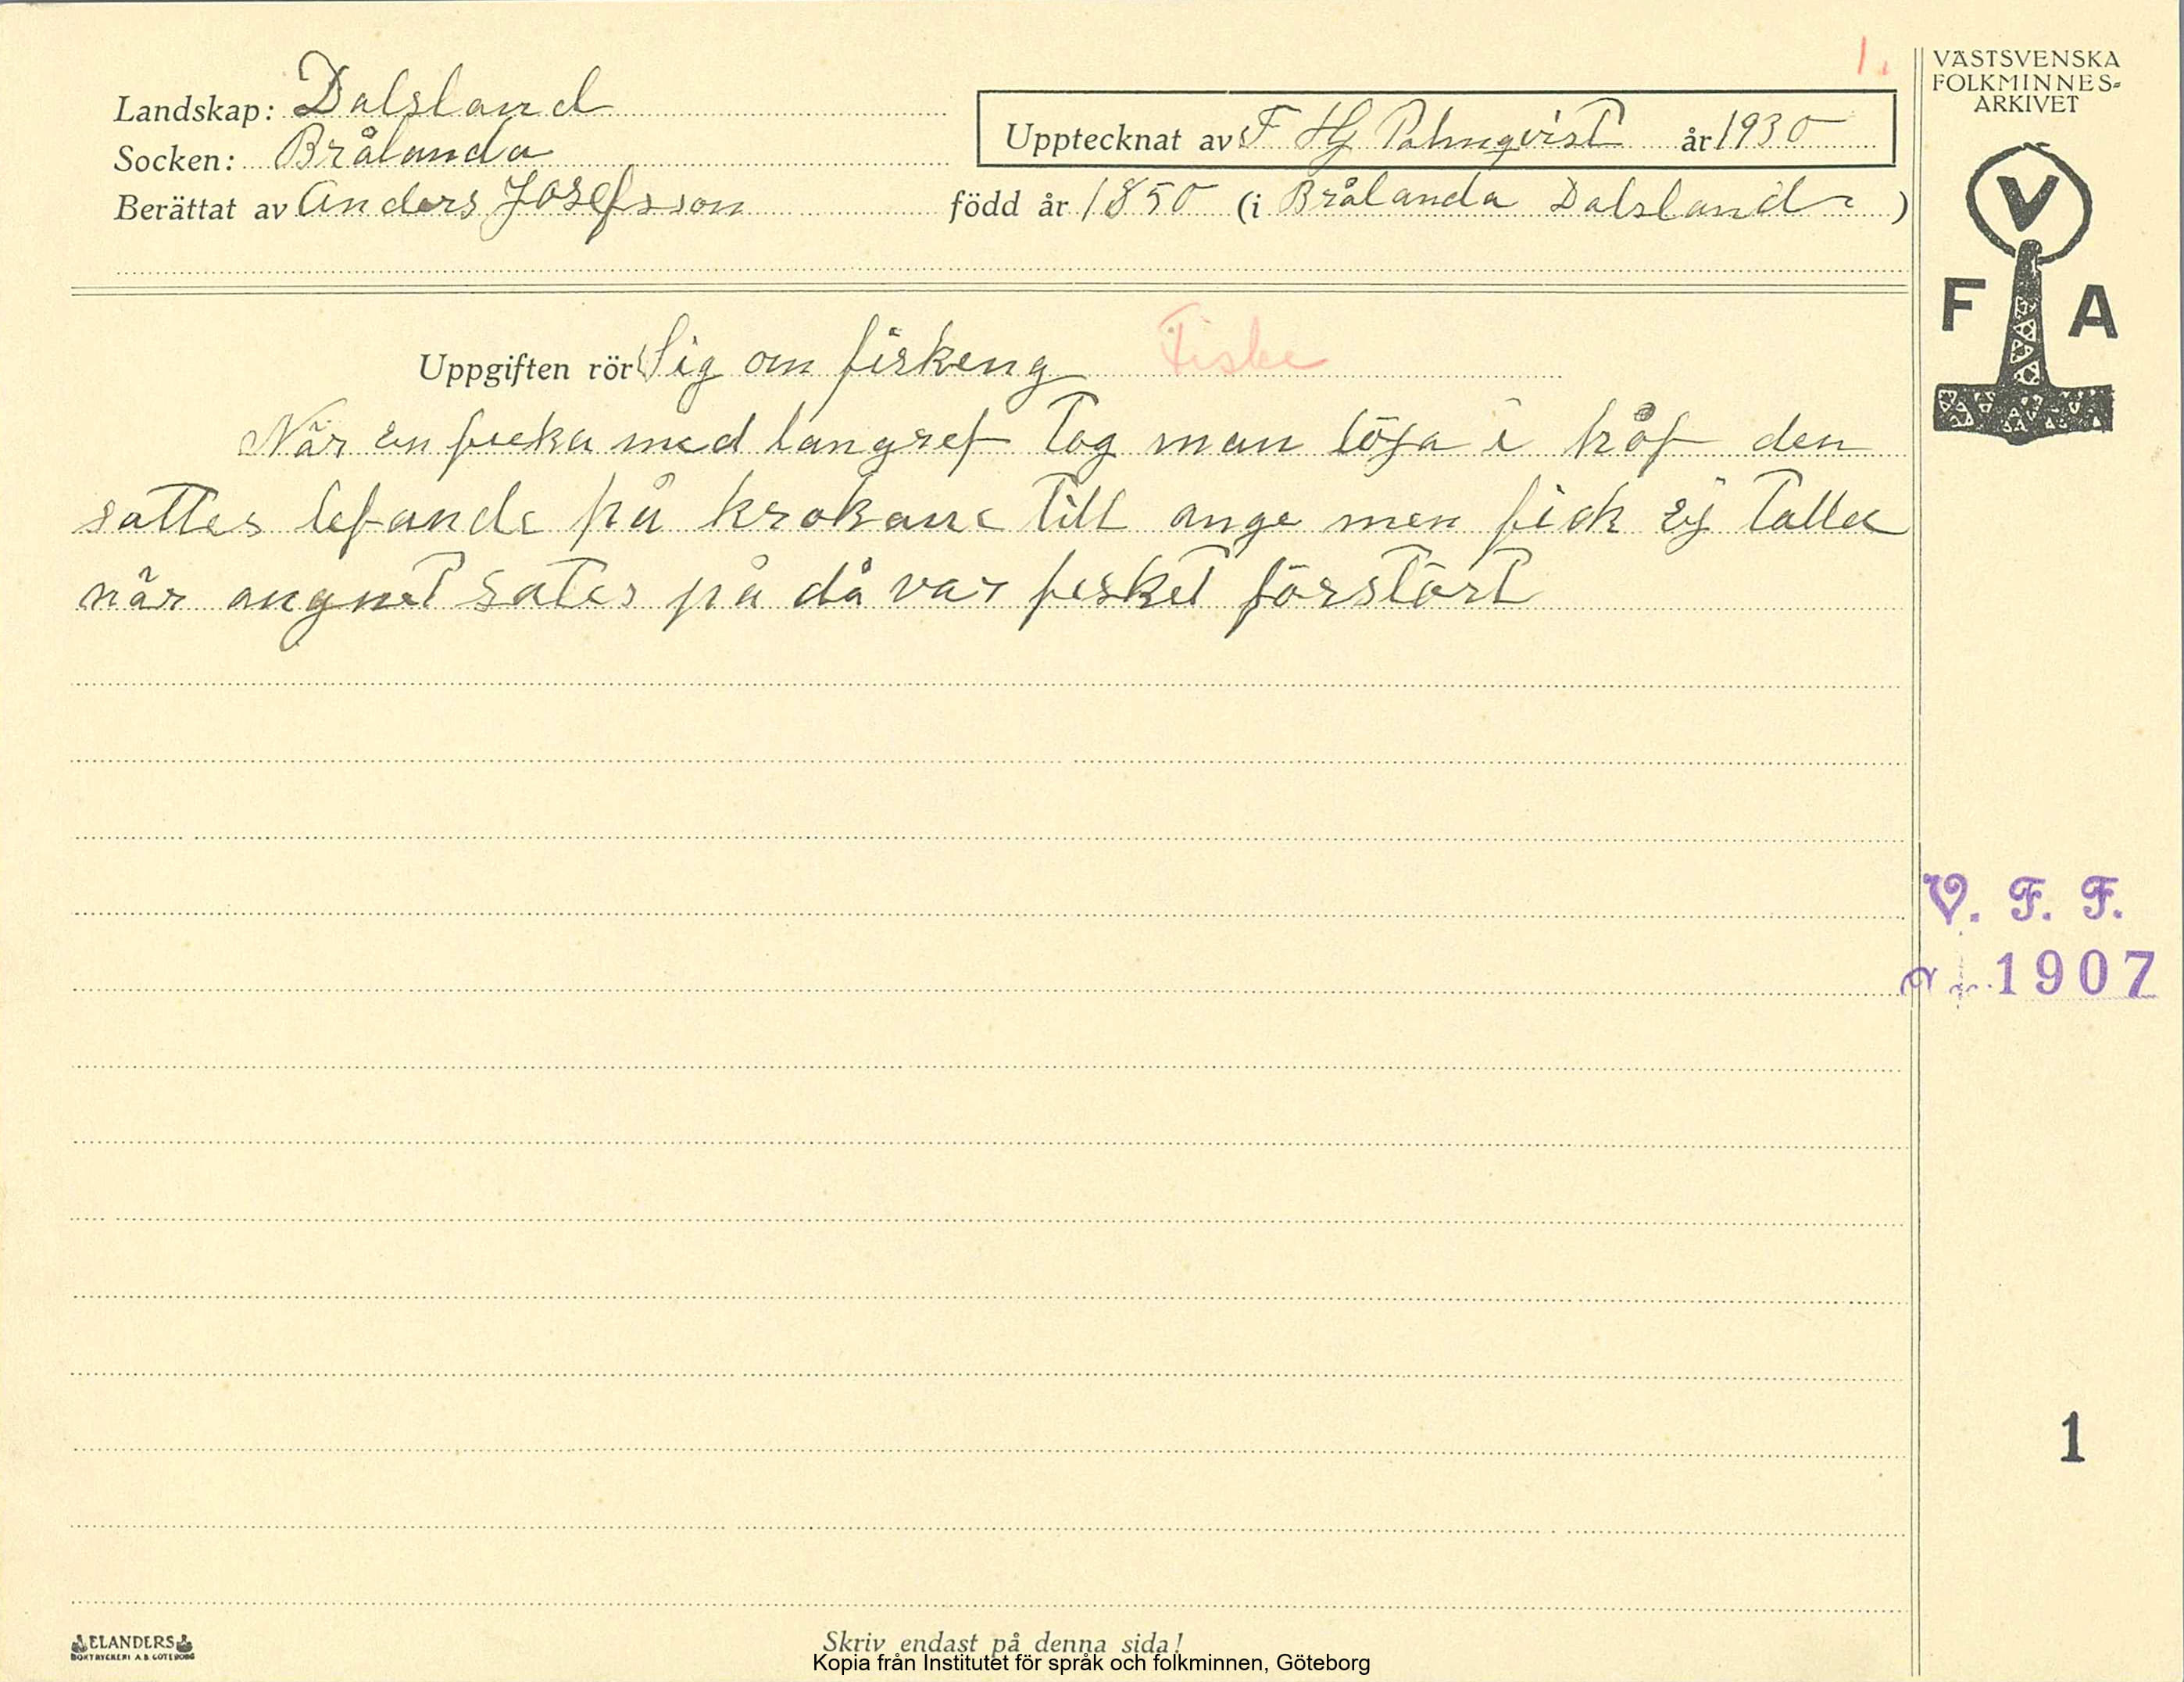 1.
VÄSTSVENSKA
FOLKMINNES-
ARKIVET
Landskap: Dalsland
Upptecknat av F Hj Palmqvist år 1930
Socken: Brålanda
Berättat av Anders Josefsson född år 1850 (i Brålanda Dalsland )
V
F A
Uppgiften rör Sig om fiskeng Fiske
När en fiska med langref tog man löja i håf den
sattes lefande på krokane till ange men fick ej talla
när angnet sates på då var fisket förstört
V. F. F.
1907
1
ELANDERS
BOKTRYCKERI A.B. GÖTEBORG
Skriv endast på denna sida!
Kopia från Institutet för språk och folkminnen, Göteborg